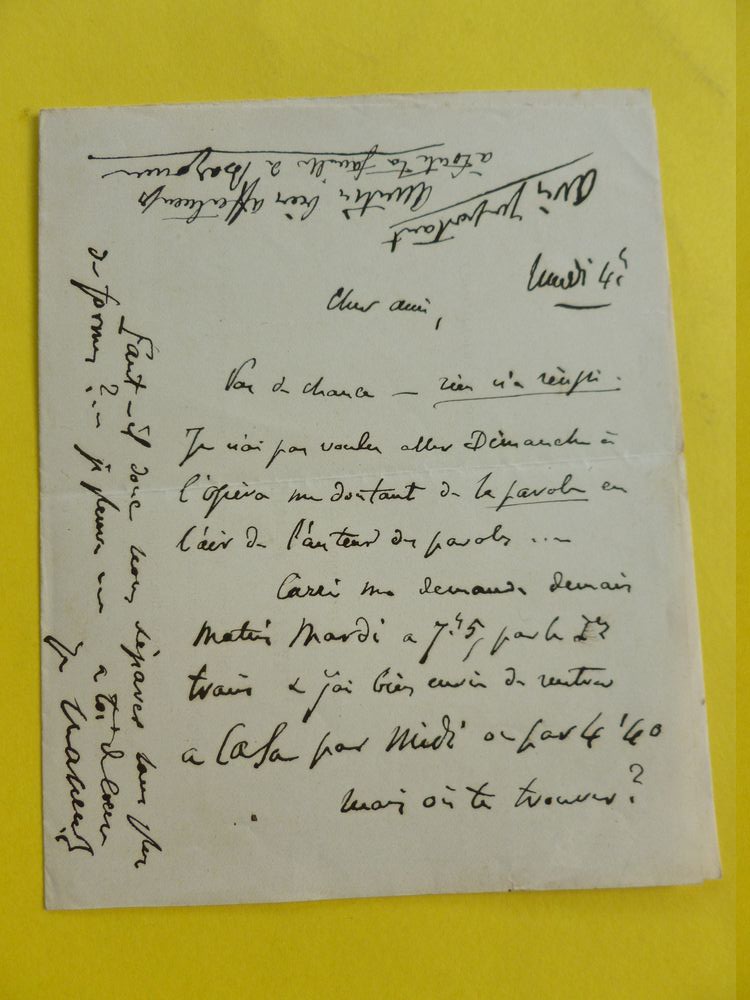 lundi 4h
Cher ami,
Pas de chance — rien n'a réussi.
Je n'ai pas voulu aller Dimanche à
l'opéra me doutant de la parole en
l'air de l'auteur des paroles ...
Carré me demande demain
matin Mardi a 7h5, par le 1er
train & j'ai bien envie de rentrer
a Casa par Midi ou par 4h40
mais où te trouver?
Faut-il donc nous séparer sans plus
de formes? ... je pleure
a toi de cœur
avis important
Amitiés bien affectueuses
à toute ta famille